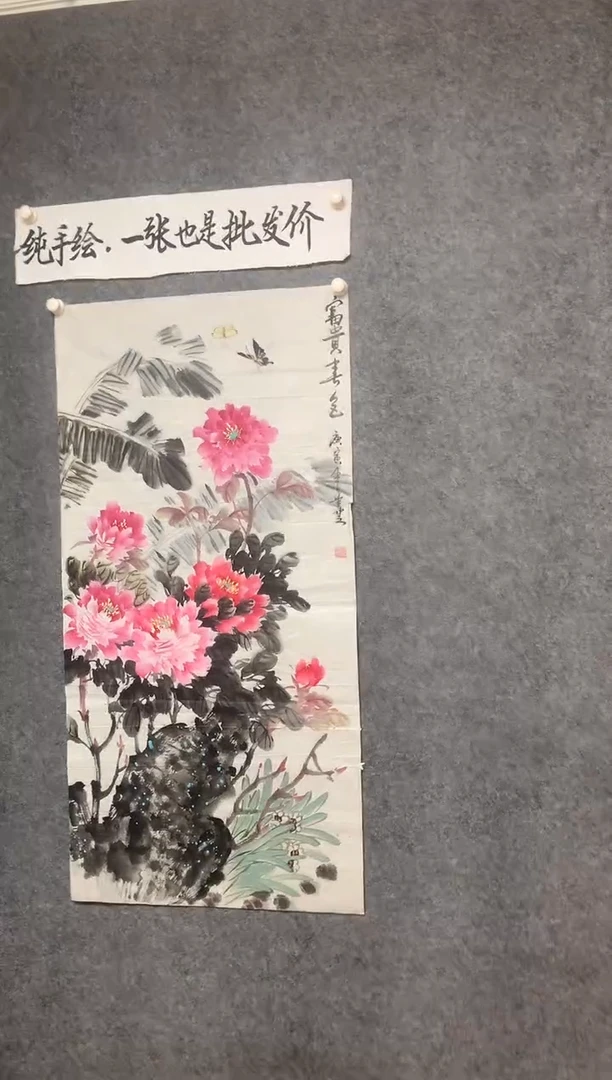 纯手绘.一张也是批发价
富貴春色
庚寅年